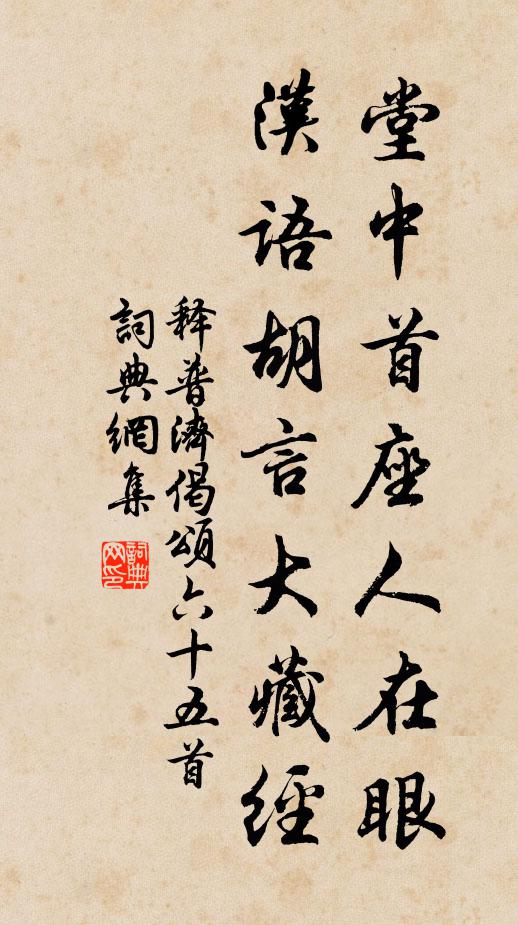 堂中首座人在眼
漢語胡言大藏經
释普濟偈頌六十五首
詞典網集
詞典網印